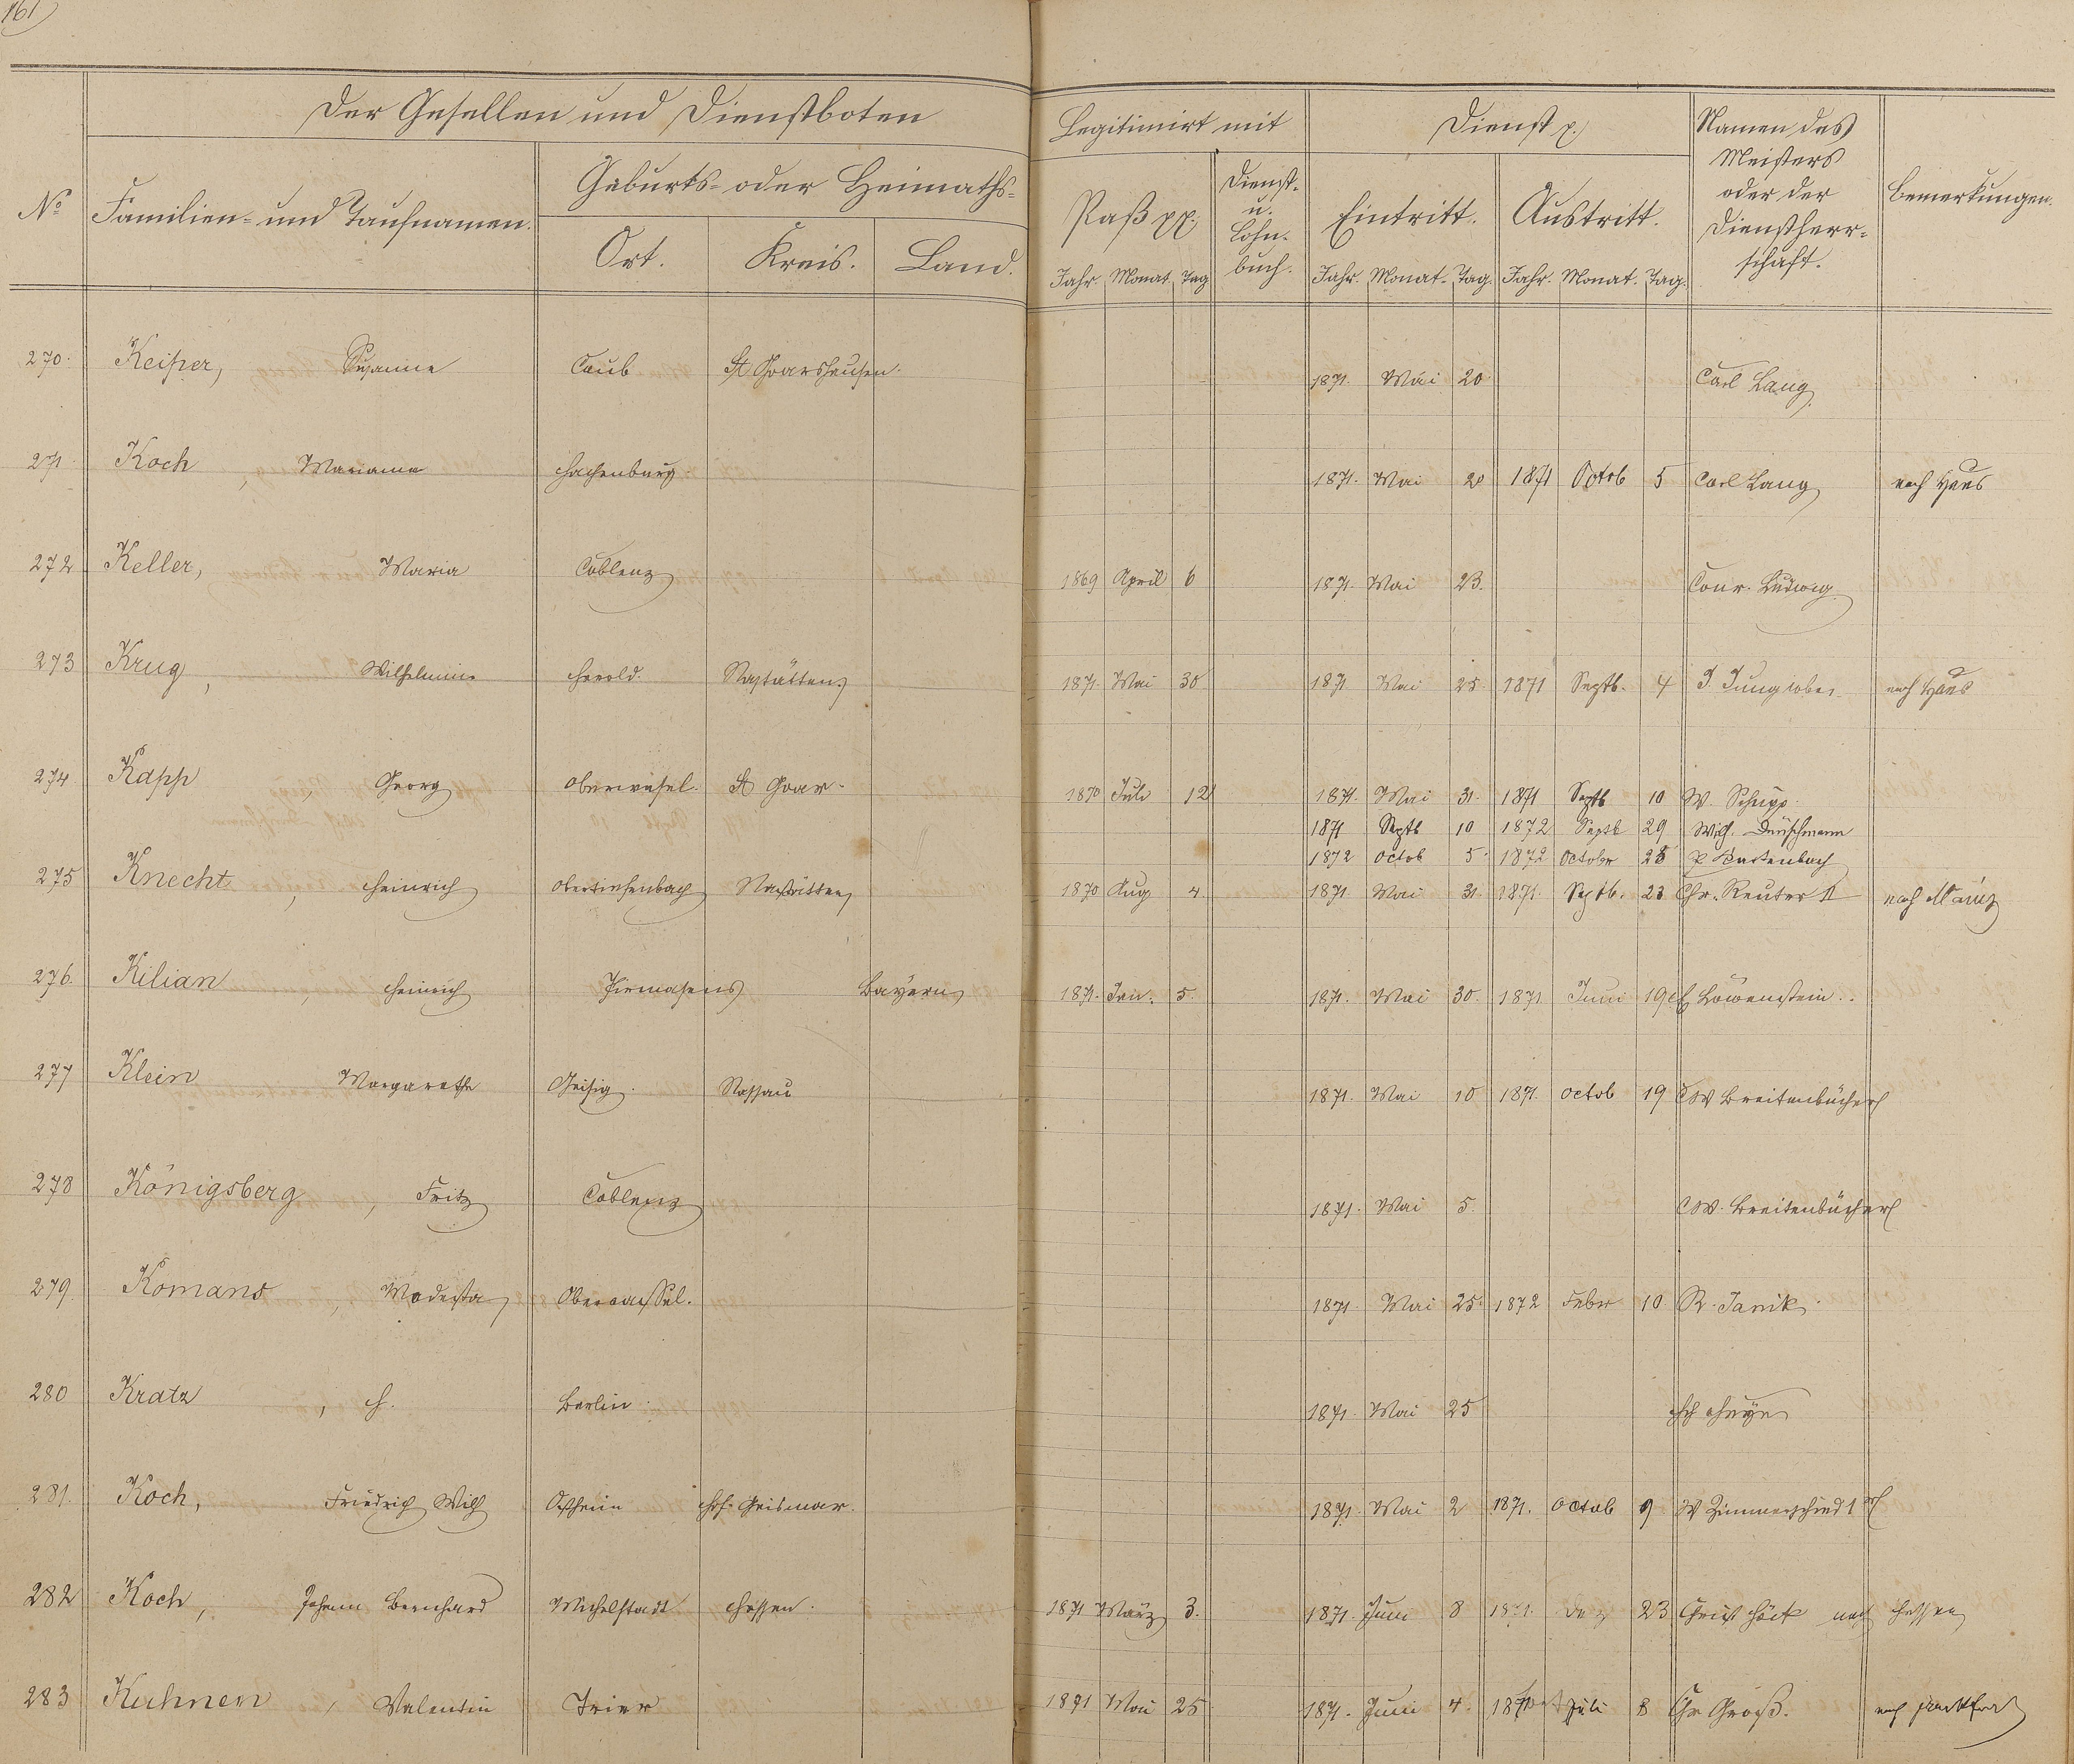 161)
Der Gesellen und Dienstboten
Legitimirt mit
Dienst p.
Namen des
Meisters
oder der
Dienstherr-
schaft.
Bemerkungen.
No
Familien- und Taufnamen.
Geburts- oder Heimaths-
Ort. Kreis. Land.
Paß pp.
Dienst-
u.
Lohn-
buch.
Eintritt. Austritt.
Jahr. Monat Tag Jahr. Monat. Tag. Jahr. Monat. Tag.
270. Keiper, Susanna Caub St Goarshausen. 1871. Mai 20 Carl Lang
271 Koch, Mariana Hachenburg 1871. Mai 20 1871 Octob 5 Carl Lang nach Haus
272 Keller, Maria Coblenz 1869 April 6 1871. Mai 23. Conr. Ludwig
273 Krug, Wilhelmine Herold. Nastätten 1871. Mai 30 1871 Mai 25 1871 Septb. 4 J. Jung nach Haus
274 Kapp, Georg Oberwesel. St Goar. 1870 Juli 12 1871. Mai 31. 1871 Septb 10 W. Schupp
1871 Septb 10 1872 Septb 29 Wich. Deuschmann
1872 Octob 5 1872 Octobr 28
275 Knecht, Heinrich Obertiefenbach Nastätten 1870 Aug 4. 1871. Mai 31. 1871. Septb. 23 Chr. Reuter II nach Mainz
276. Kilian, Heinrich Pirmasens Bayern 1871. Jan. 5. 1871. Mai 30. 1871 Juni 19 Löwenstein.
277 Klein Margarethe Geisig. Nassau 1871. Mai 10 1871. Octob 19 CW Breitenbücher
278 Königsberg, Fritz Coblenz 1871. Mai 5. CW. Breitenbücher
279 Komans, Modesta 1871. Mai 25. 1872 Febr 10. R. Janik
280 Kratz, H. Berlin 1871. Mai 25
281. Koch, Friedrich Wilh Ostheim Hof-Geismar. 1871. Mai 2 1871. Octob 9 W Zimmerschied 1r
282 Koch, Johann Bernhard Michelstadt Hessen. 1871 März 3. 1871. Juni 8 1871. Dez 23 Christ nach Hessen
283 Kuhnen, Valentin Trier 1871 Mai 25 1871. Juni 4. 1871 Juli 8 Chr Groß. nach Frankfurt